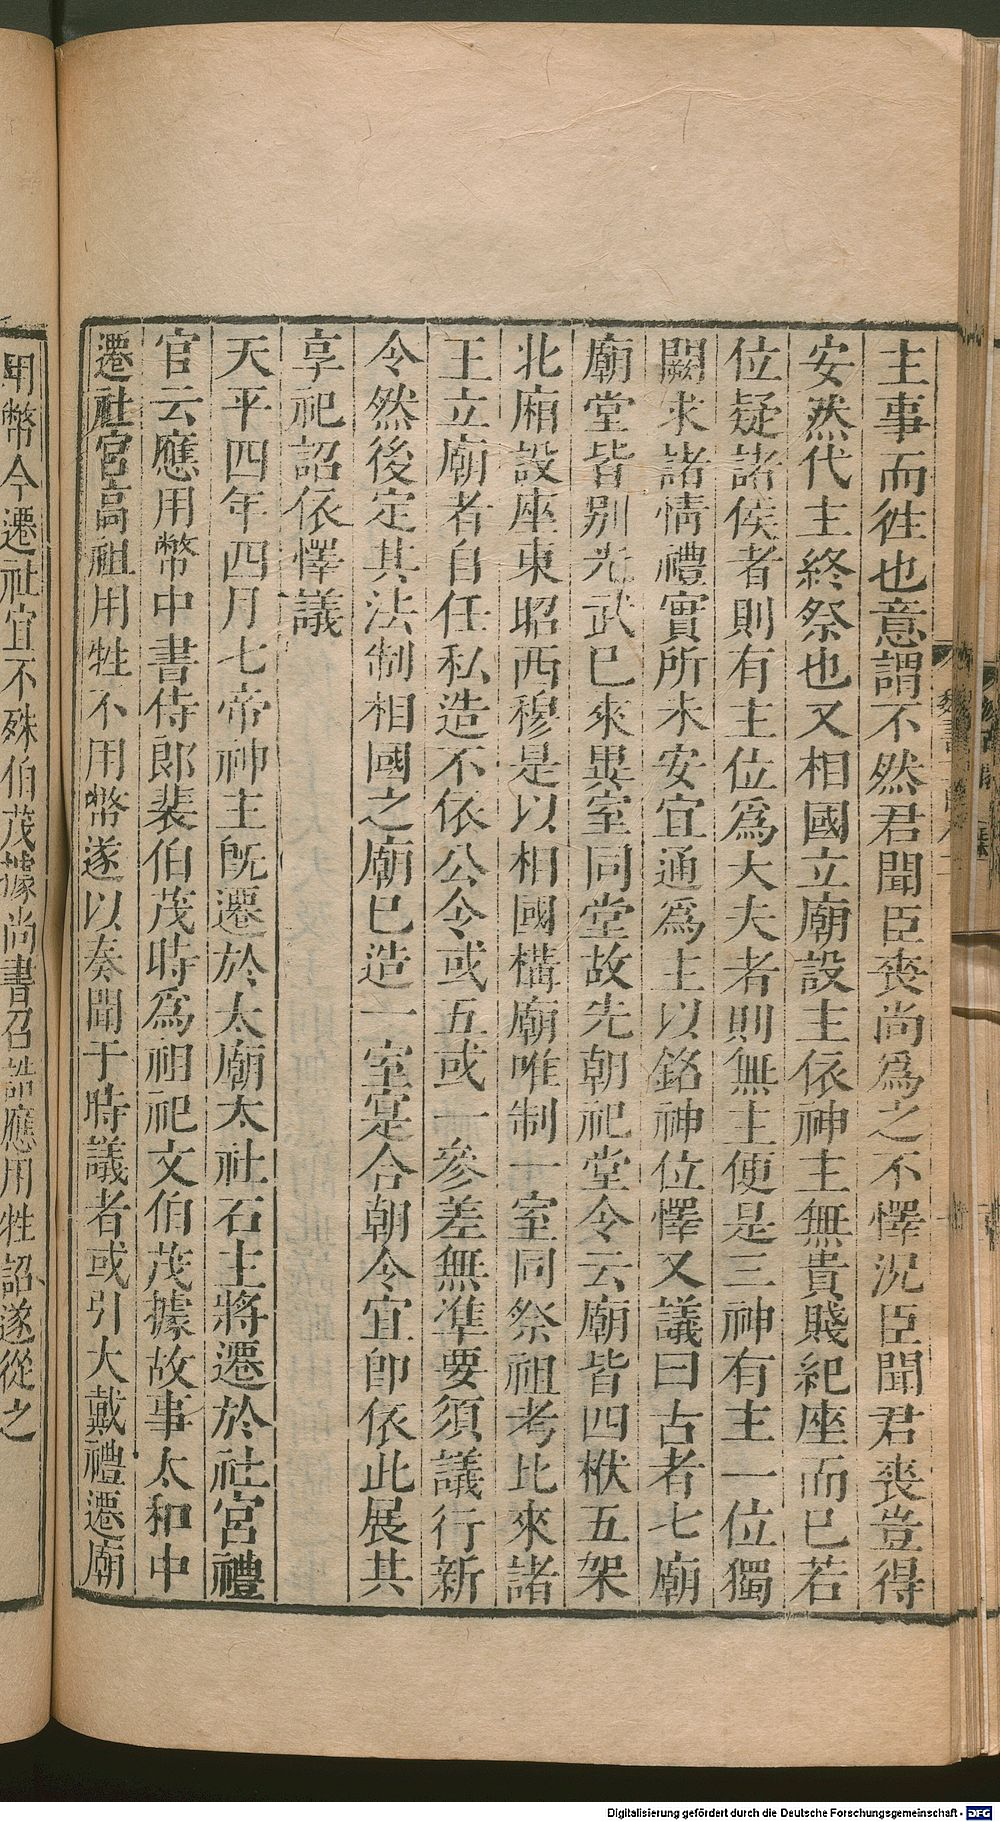 主事而徃也意謂不然君聞臣喪尚爲之不懌況臣聞君喪豈得
安然代主終祭也又相國立廟設主依神主無貴賤紀座而已若
位疑諸侯者則有主位爲大夫者則無主便是三神有主一位獨
闕求諸情禮實所未安宜通爲主以銘神位懌又議曰古者七廟
廟堂皆别光武已來異室同堂故先朝祀堂令云廟皆四栿五架
北廂設座東昭西穆是以相國構廟唯制一室同祭祖考比來諸
王立廟者自任私造不依公令或五或一參差無準要須議行新
令然後定其法制相國之廟已造一室寔合朝令宜卽依此展其
享祀詔依懌議
天平四年四月七帝神主旣遷於太廟太社石主將遷於社宮禮
官云應用幣中書侍郎裴伯茂時爲祖祀文伯茂據故事太和中
遷社宮高祖用牲不用幣遂以奏聞于時議者或引大戴禮遷廟
用幣今遷社宜不殊伯茂據尚書召誥應用牲詔遂從之
Digitalisierung gefördert durch die Deutsche Forschungsgemeinschaft - DFG